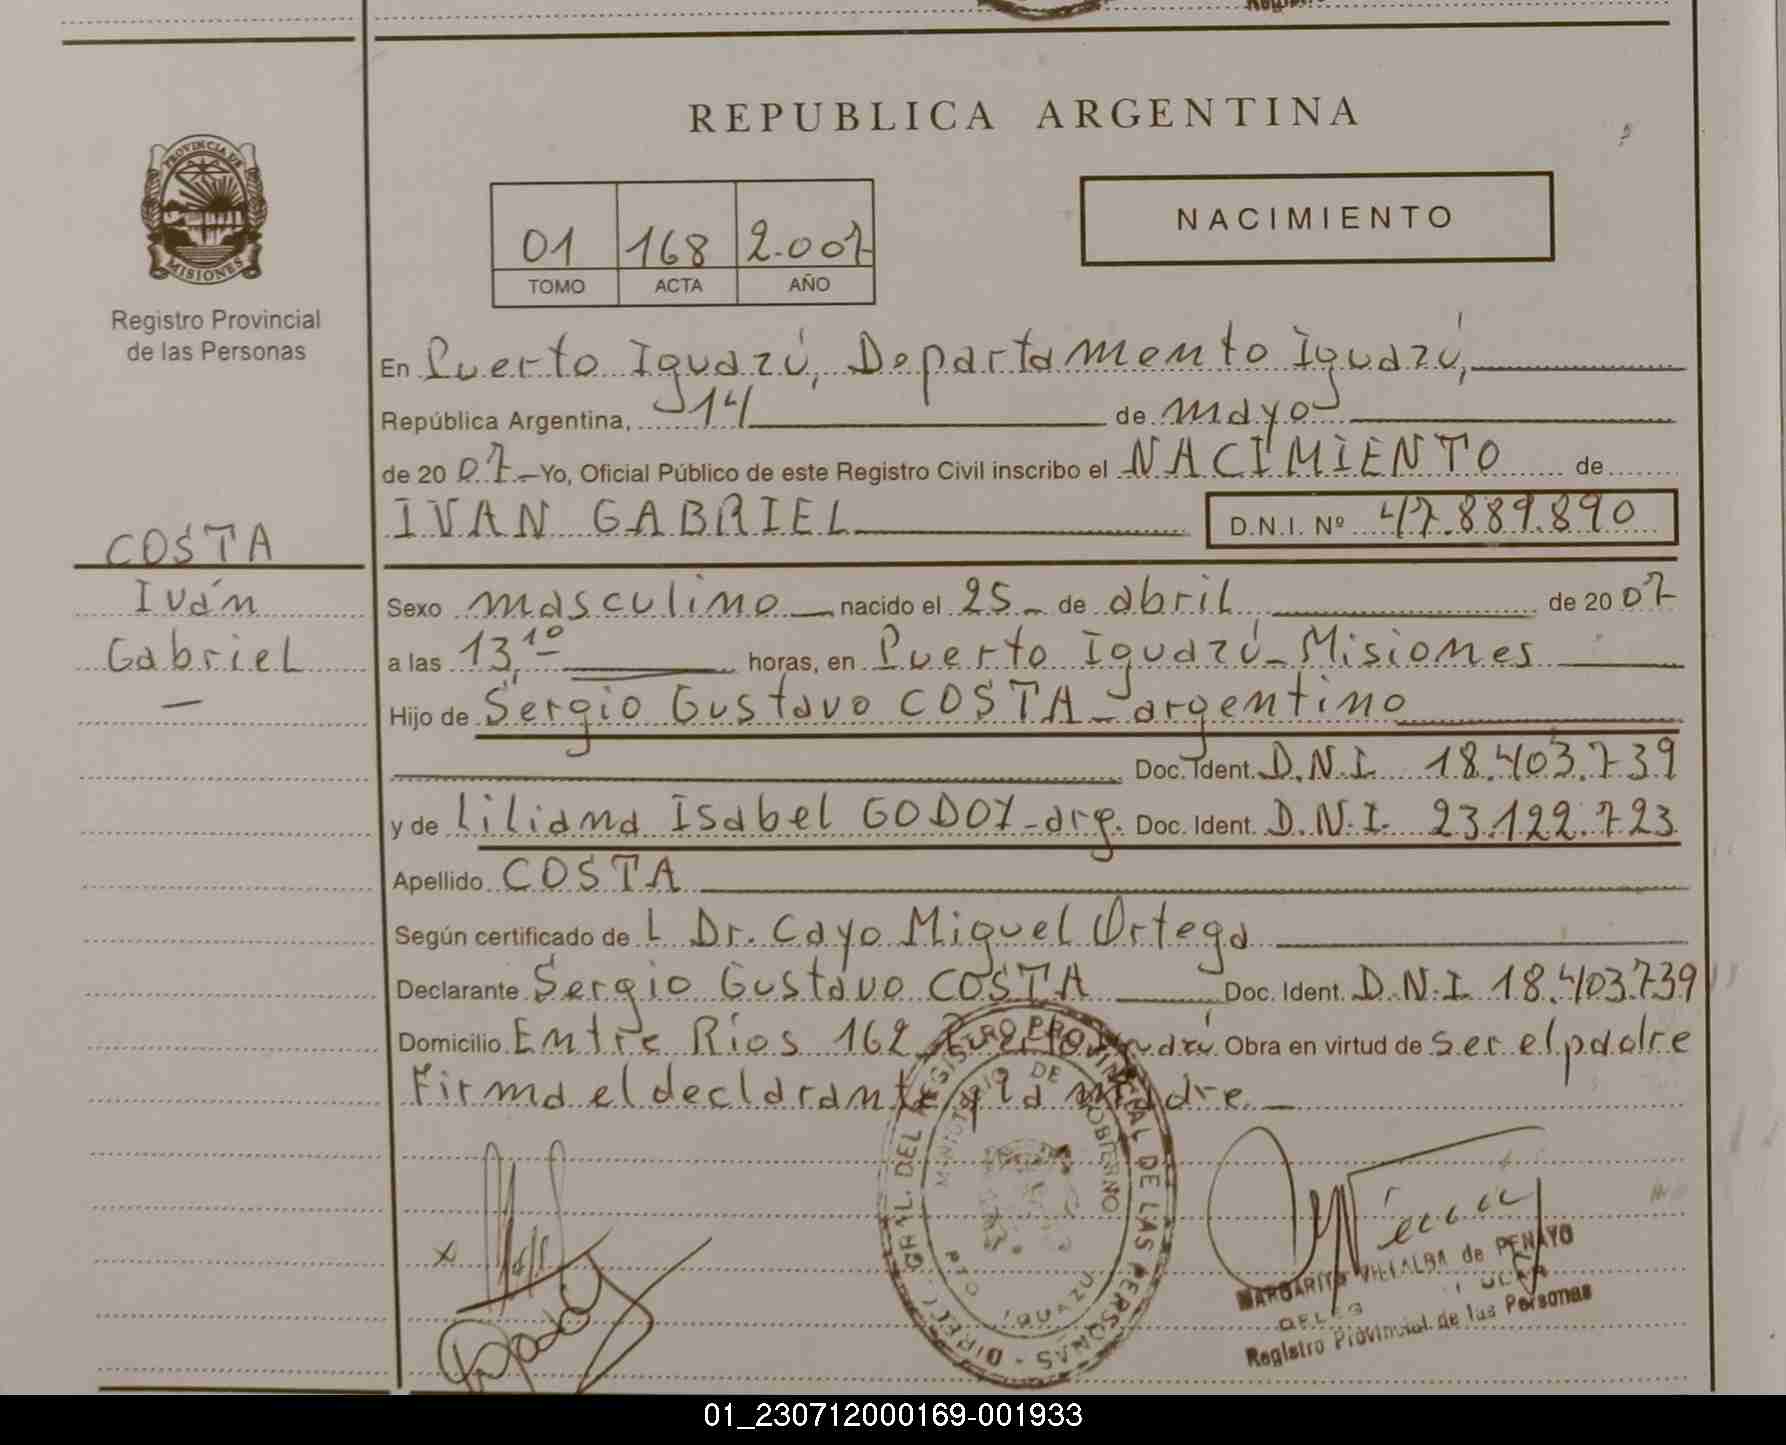 REPUBLICA ARGENTINA
PROVINCIA DE
MISIONES
Registro Provincial
de las Personas
01 168 2.007
TOMO ACTA AÑO
NACIMIENTO
En Puerto Iguazú, Departamento Iguazú,
República Argentina, 14 de mayo
de 20 07 Yo, Oficial Público de este Registro Civil inscribo el NACIMIENTO de
IVAN GABRIEL D.N.I. Nº 47.889.890
COSTA
Iván
Gabriel
Sexo masculino nacido el 25 de abril de 20 07
a las 13,10 horas, en Puerto Iguazú - Misiones
Hijo de Sergio Gustavo COSTA - argentino
Doc. Ident. D.N.I. 18.403.739
y de Liliana Isabel GODOY - arg. Doc. Ident. D.N.I. 23.122.723
Apellido COSTA
Según certificado de L Dr. Cayo Miguel Ortega
Declarante Sergio Gustavo COSTA Doc. Ident. D.N.I. 18.403.739
Domicilio Entre Ríos 162 Puerto Iguazú Obra en virtud de ser el padre
Firma el declarante y la madre
DIREC. GRAL. DEL REGISTRO PROVINCIAL DE LAS PERSONAS
MINISTERIO DE GOBIERNO
PTO. IGUAZU
MARGARITA VILLALBA de PENAYO
Registro Provincial de las Personas
01_230712000169-001933